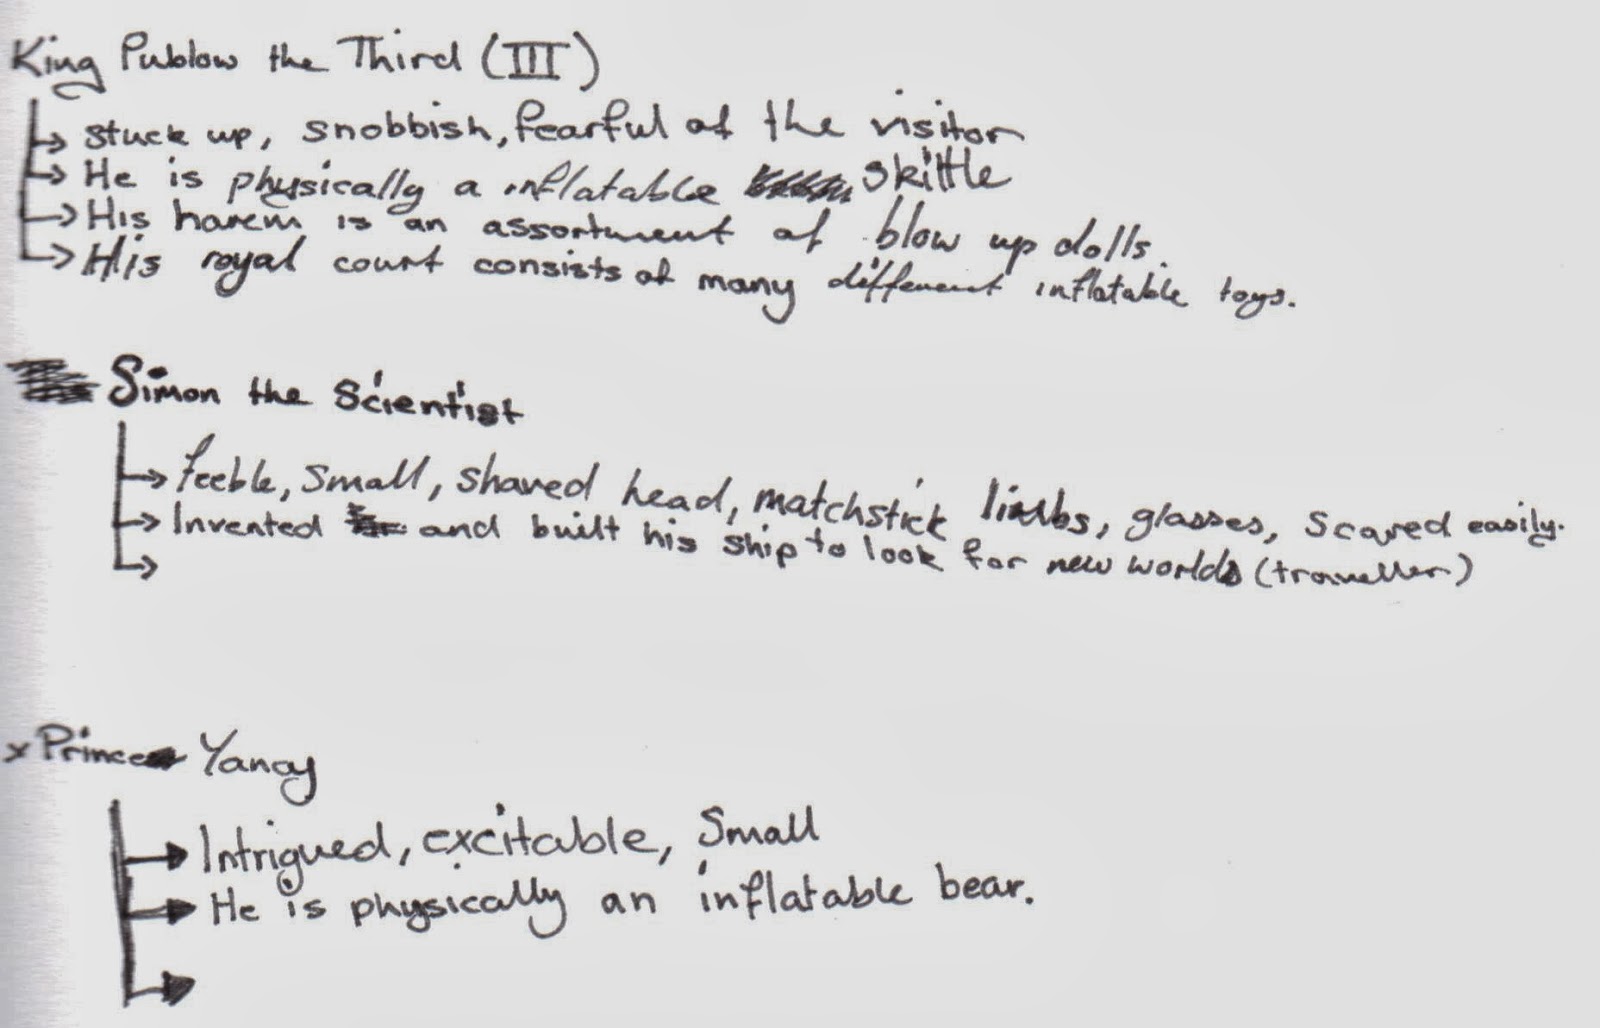 King Publow the Third (III)
Stuck up, snobbish, fearful of the visitor
He is physically a inflatable skittle
His harem is an assortment of blow up dolls.
His royal court consists of many different inflatable toys.
Simon the Scientist
feeble, small, shaved head, matchstick limbs, glasses, scared easily.
Invented and built his ship to look for new worlds (traveller)
x Prince Yanoy
Intrigued, excitable, small
He is physically an inflatable bear.